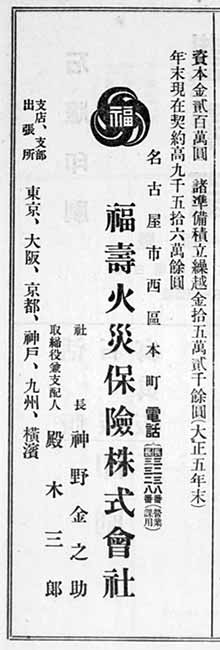 資本金貳百萬圓　諸準備積立繰越金拾五萬貳千餘圓(大正五年末)
年末現在契約高九千五拾六萬餘圓
名古屋市西區本町 電話 三三三八番(營業用) 三三二八番
福
福壽火災保險株式會社
社長 神野金之助
取締役兼支配人 殿木三郎
支店、支部
出張所
東京、大阪、京都、神戸、九州、橫濱